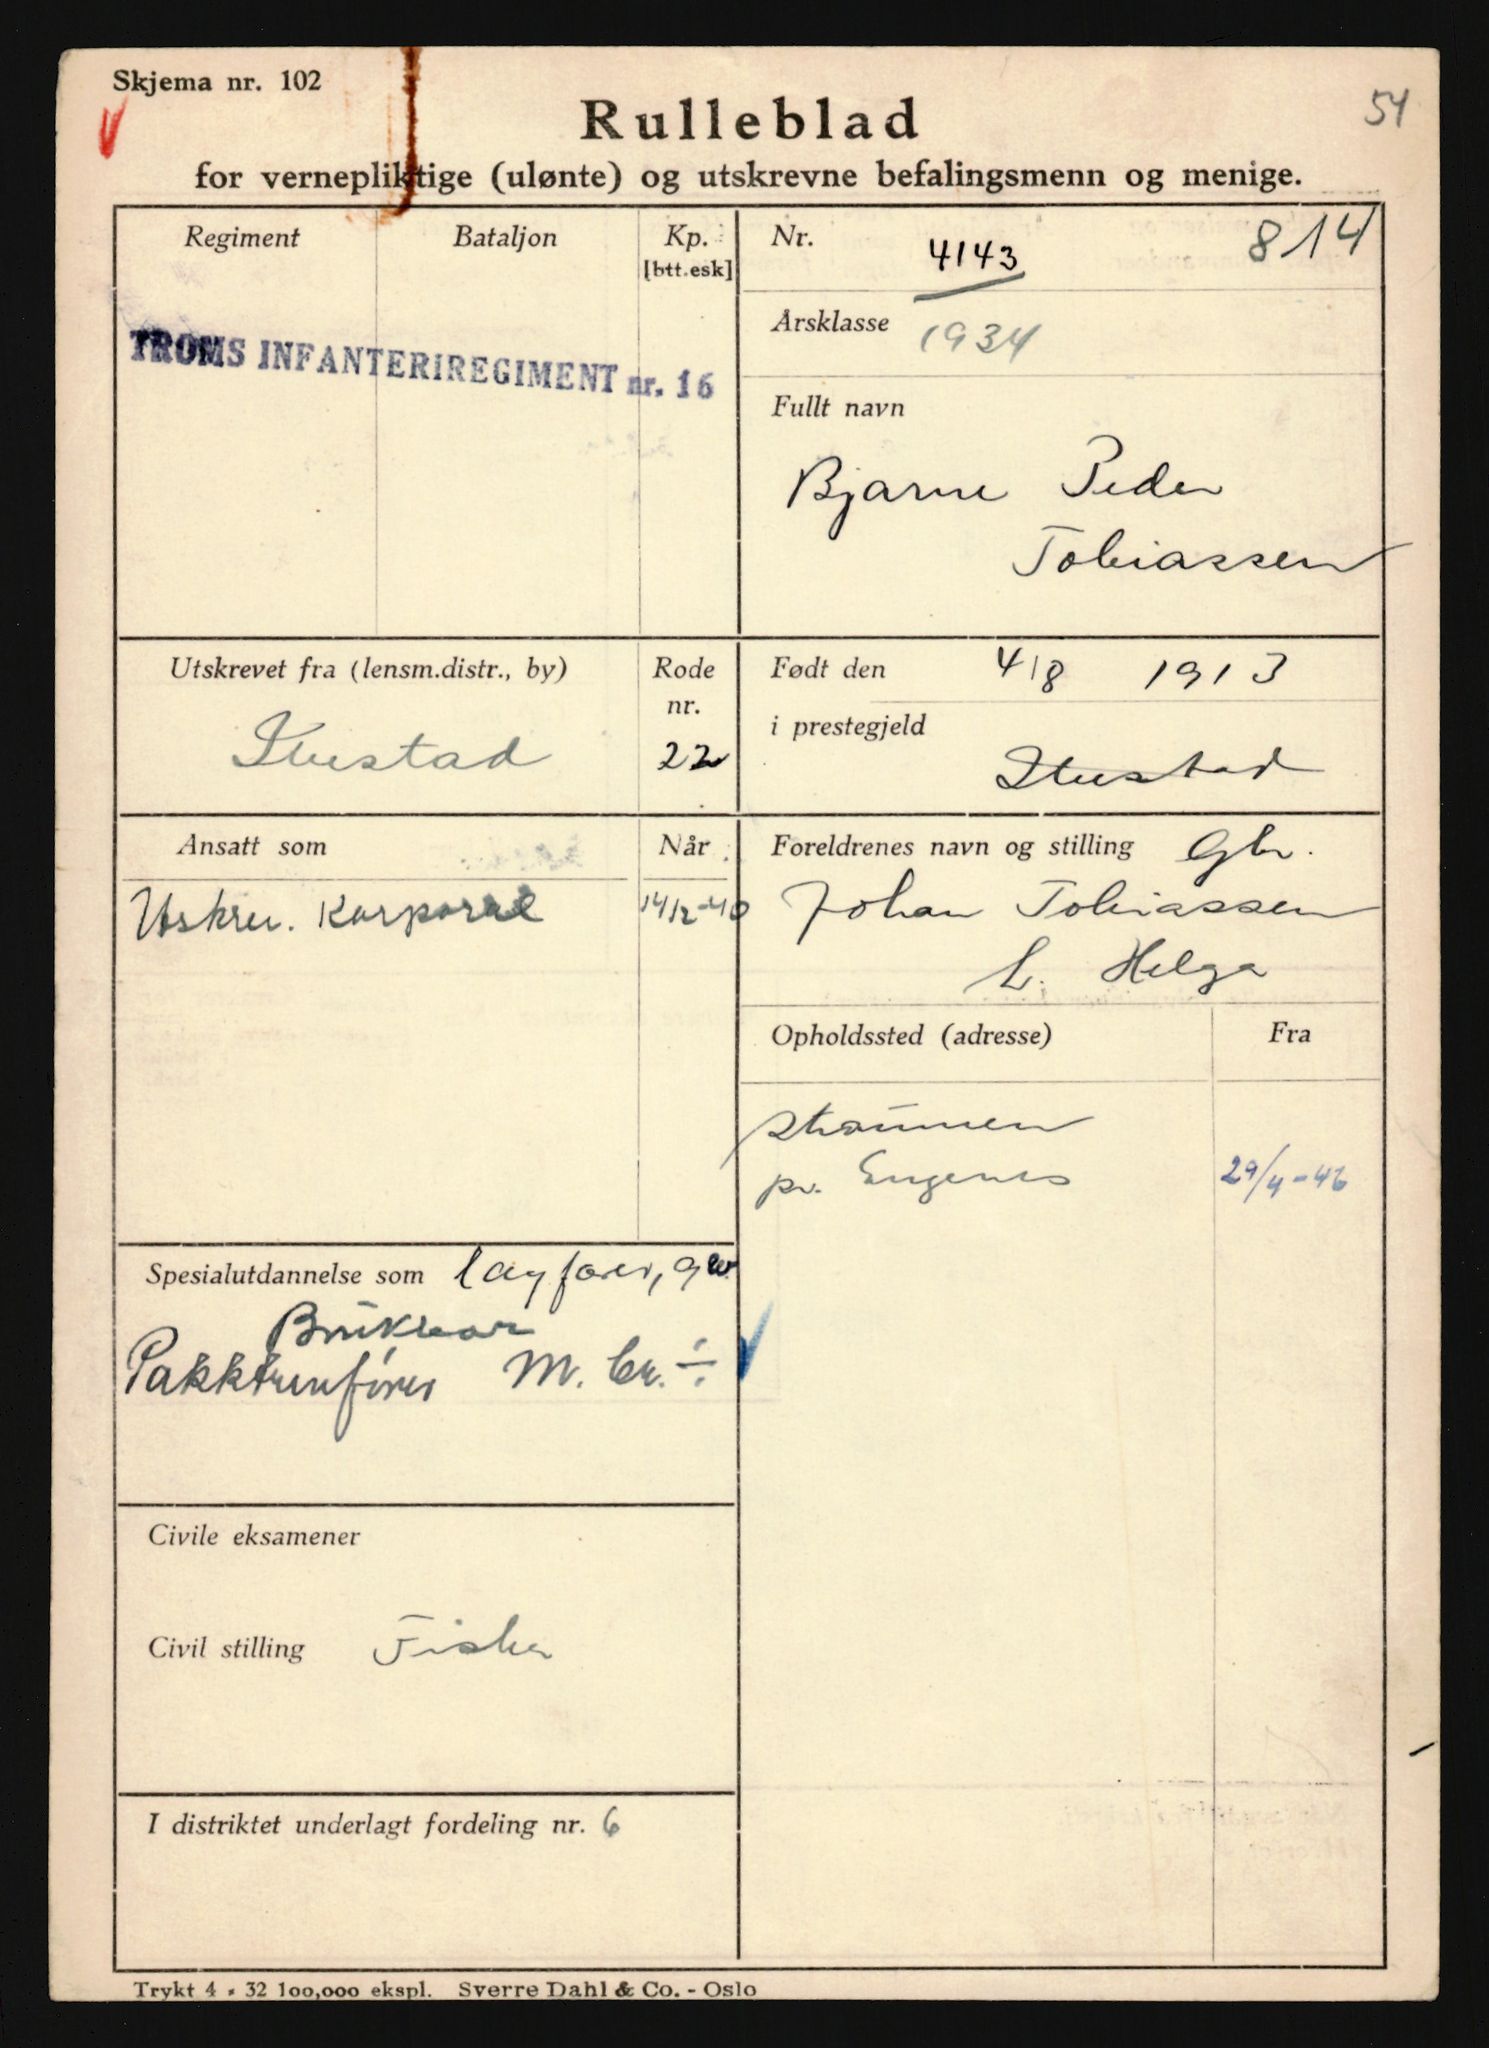 Skjema nr. 102
54
Rulleblad
for vernepliktige (ulønte) og utskrevne befalingsmenn og menige.
Regiment
Bataljon
Kp.
[btt.esk]
TROMS INFANTERIREGIMENT nr. 16
Nr.
4143
814
Årsklasse 1934
Fullt navn
Bjarne Peder
Tobiassen
Utskrevet fra (lensm.distr., by)
Ibestad
Rode
nr.
22
Født den 4/8 1913
i prestegjeld
Ibestad
Ansatt som
Når
Utskrev. Korporal
14/2-40
Foreldrenes navn og stilling Gbr.
Johan Tobiassen
h. Helga
Opholdssted (adresse)
Fra
Straumen
pr. Engenes
29/4-46
Spesialutdannelse som lagfører, gev.
Brukbar
Pakktrenfører M. br. ÷
Civile eksamener
Civil stilling Fisker
I distriktet underlagt fordeling nr. 6
Trykt 4 - 32 100,000 ekspl. Sverre Dahl & Co. - Oslo